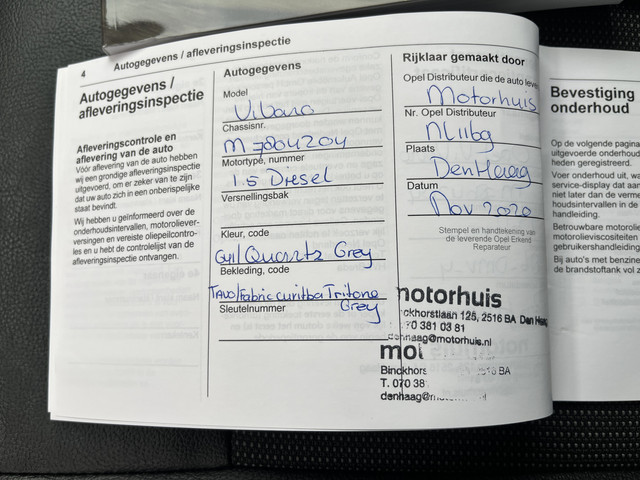 4 Autogegevens / afleveringsinspectie
Autogegevens /
afleveringsinspectie
Afleveringscontrole en
aflevering van de auto
Vóór aflevering van de auto hebben
wij een grondige afleveringsinspectie
uitgevoerd, om er zeker van te zijn
dat uw auto zich in een onberispelijke
staat bevindt.
Wij hebben u geïnformeerd over de
onderhoudsintervallen, motoroliever-
versingen en vereiste oliepeilcontro-
les en u hebt de controlelijst van de
afleveringsinspectie ontvangen.
Autogegevens
Model
Vivaro
Chassisnr.
M7804204
Motortype, nummer
1.5 Diesel
Versnellingsbak
Kleur, code
Quartz Grey
Bekleding, code
Fabric curitba Tritone
Grey
Sleutelnummer
Rijklaar gemaakt door
Opel Distributeur die de auto leve
Motorhuis
Nr. Opel Distributeur
Plaats
Den Haag
Datum
Nov 2020
Stempel en handtekening van
de leverende Opel Erkend
Reparateur
motorhuis
ckhorstlaan 125, 2516 BA Den Haag
70 381 03 81
denhaag@motorhuis.nl
mot
Binckhors 2516 BA
T. 070 38
denhaag@m
Bevestiging
onderhoud
Op de volgende pagina
uitgevoerde onderhoud
heden geregistreerd.
Voer onderhoud uit, wa
service-display dat aan
niet later dan de verme
houdsintervallen in de
handleiding.
Betrouwbare motorolie
motorolieviscositeiten
gebruikershandleiding
Bij auto's met benzine
de brandstoftank vol z